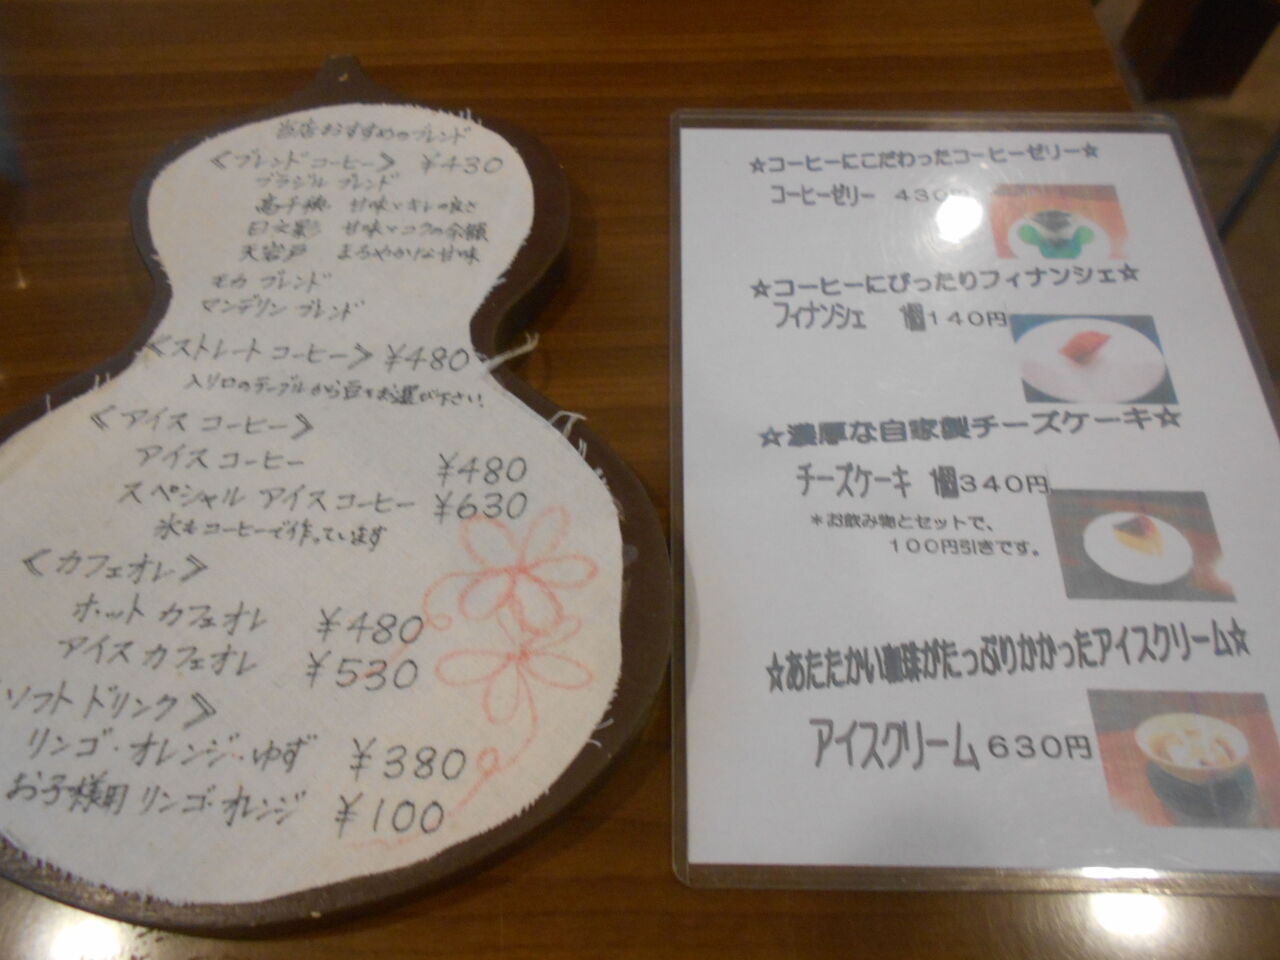 当店おすすめのブレンド
《ブレンドコーヒー》 ￥430
ブラジル ブレンド
高千穂 甘味とキレの良さ
日之影 甘味とコクの余韻
天岩戸 まろやかな甘味
モカ ブレンド
マンデリン ブレンド
《ストレートコーヒー》 ￥480
入り口のテーブルから豆をお選び下さい!
《アイス コーヒー》
アイス コーヒー ￥480
スペシャル アイスコーヒー ￥630
氷もコーヒーで作っています
《カフェオレ》
ホット カフェオレ ￥480
アイス カフェオレ ￥530
ソフト ドリンク》
リンゴ・オレンジ・ゆず ￥380
お子様用 リンゴ・オレンジ ￥100
☆コーヒーにこだわったコーヒーゼリー☆
コーヒーゼリー 430円
☆コーヒーにぴったりフィナンシェ☆
フィナンシェ 1個140円
☆濃厚な自家製チーズケーキ☆
チーズケーキ 1個340円
＊お飲み物とセットで、
100円引きです。
☆あたたかい珈琲がたっぷりかかったアイスクリーム☆
アイスクリーム 630円